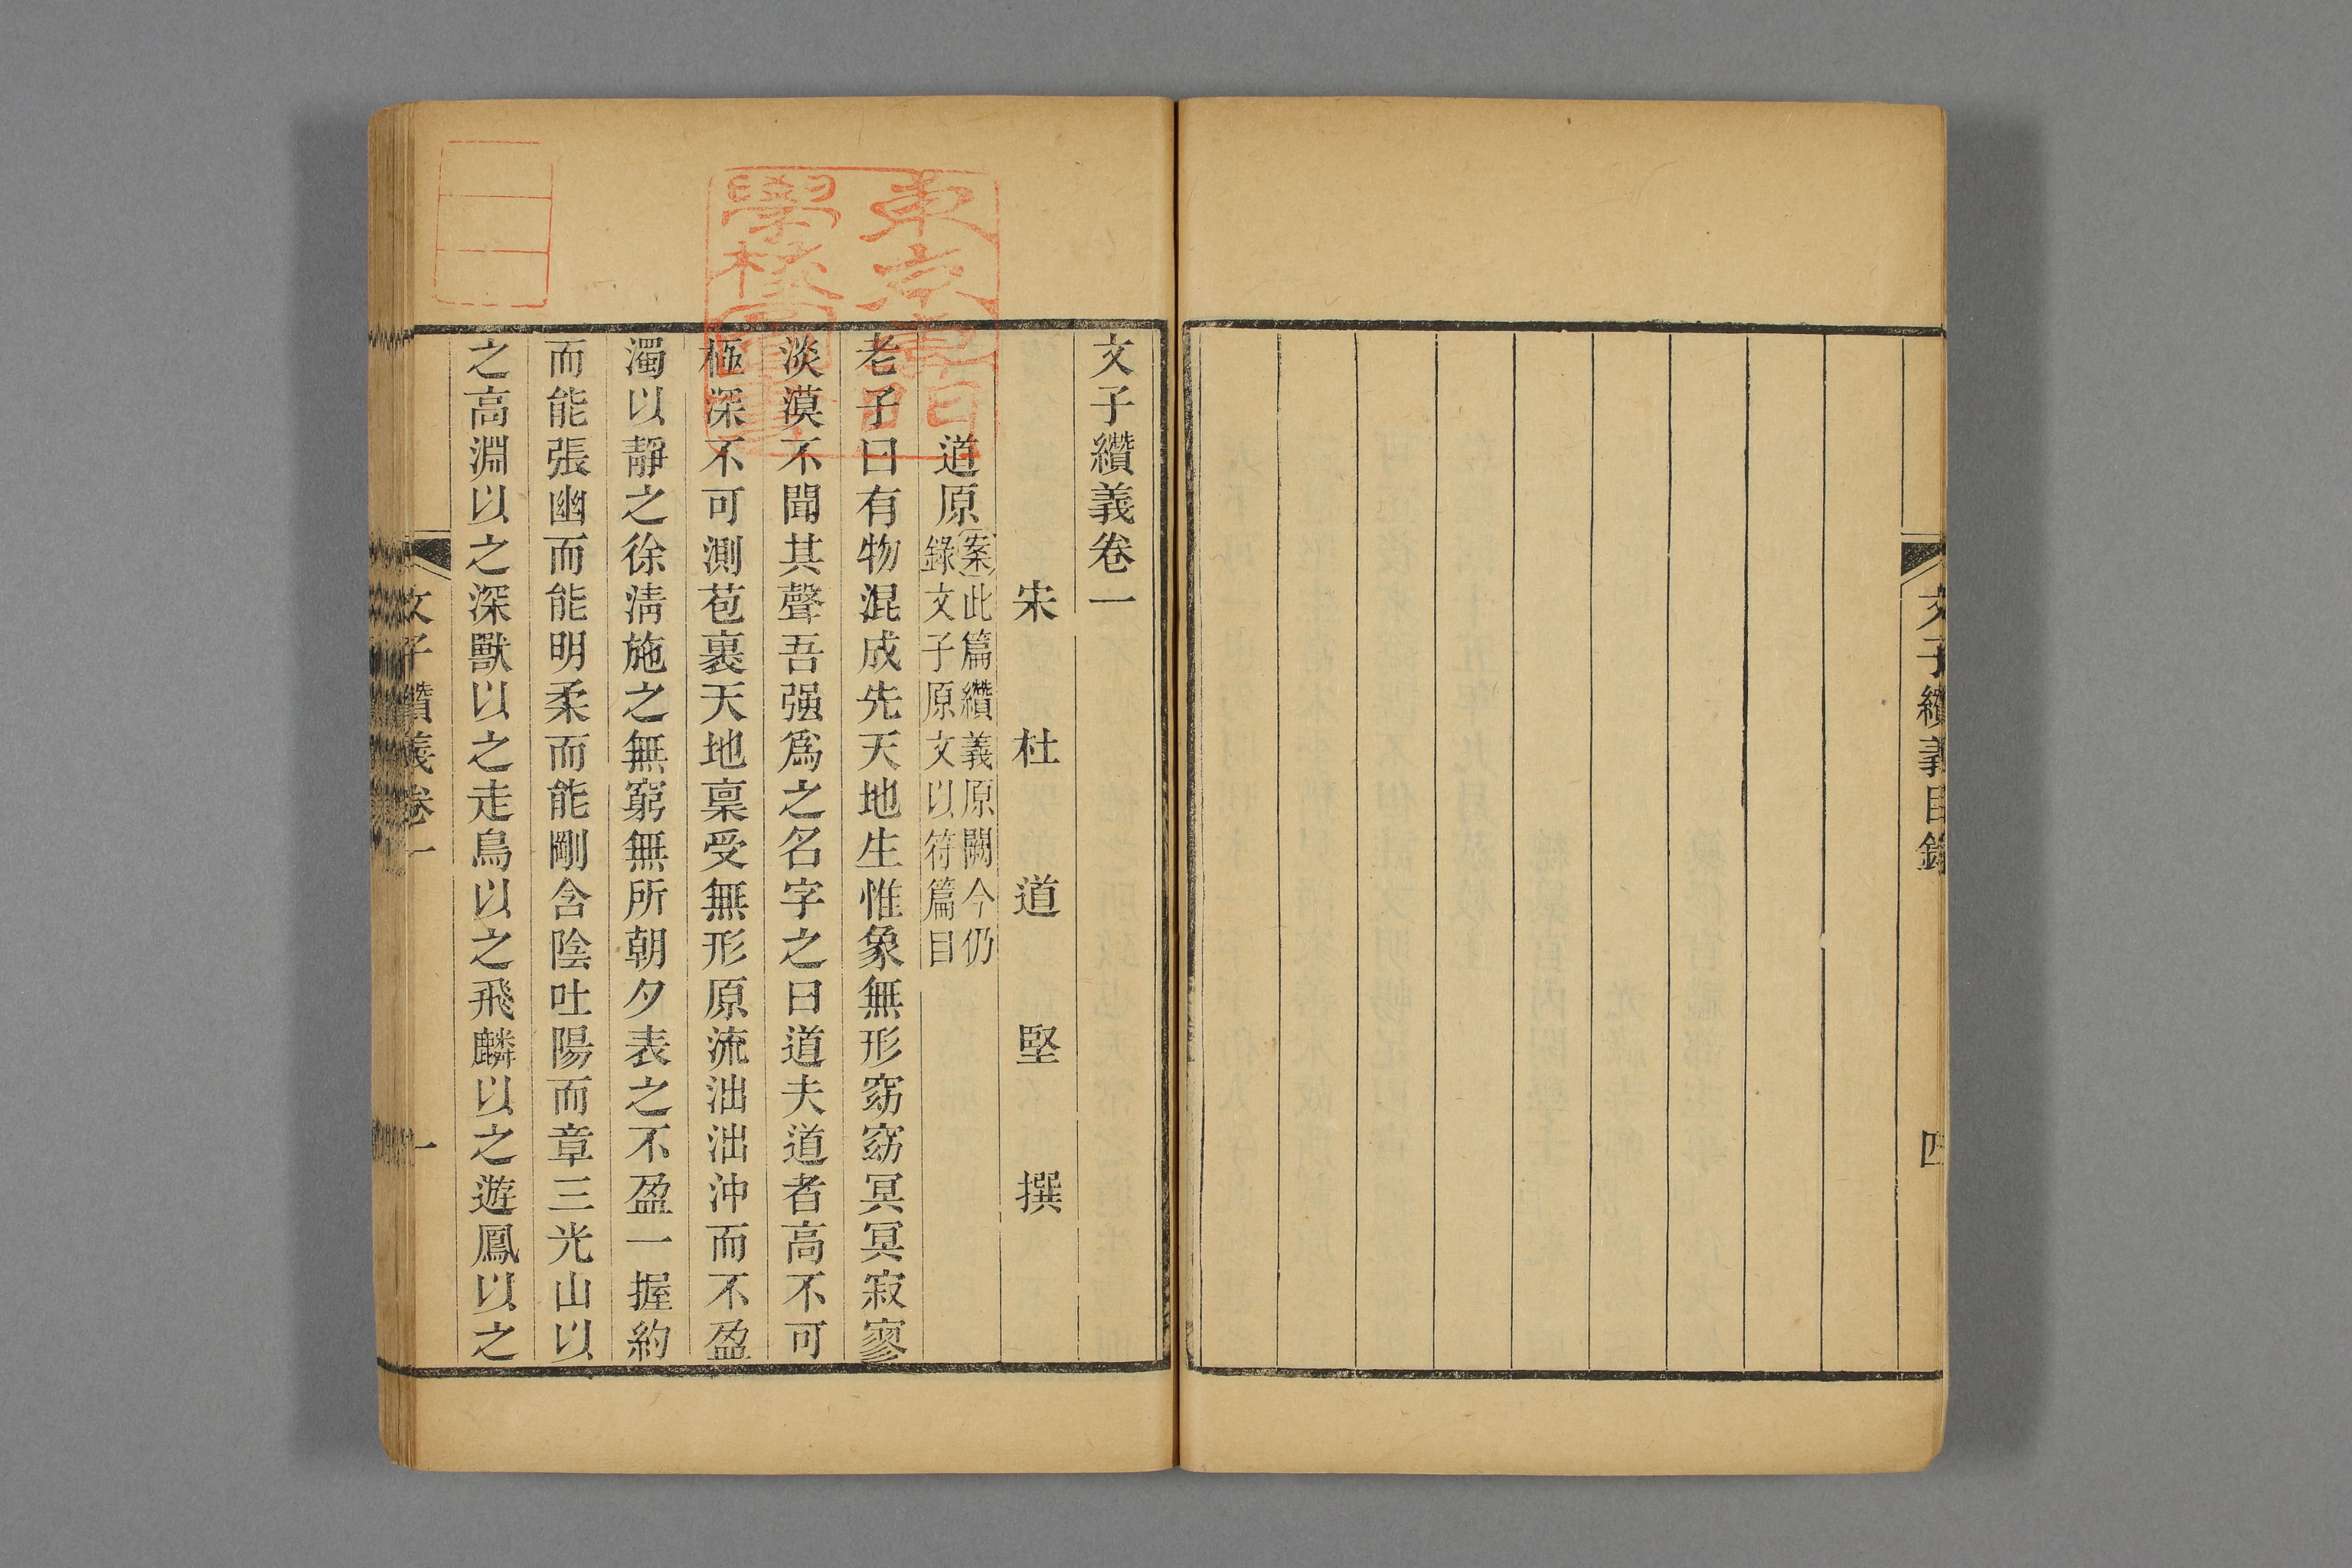 文子纘義目錄
四
文子纘義卷一
宋杜道堅撰
道原
案此篇纘義原闕今仍
錄文子原文以符篇目
老子曰有物混成先天地生惟象無形窈窈冥冥寂寥
淡漠不聞其聲吾强爲之名字之曰道夫道者高不可
極深不可測苞裹天地稟受無形原流泏泏沖而不盈
濁以靜之徐淸施之無窮無所朝夕表之不盈一握約
而能張幽而能明柔而能剛含陰吐陽而章三光山以
之高淵以之深獸以之走鳥以之飛麟以之遊鳳以之
文子纘義卷一
一
東京專
學校圖